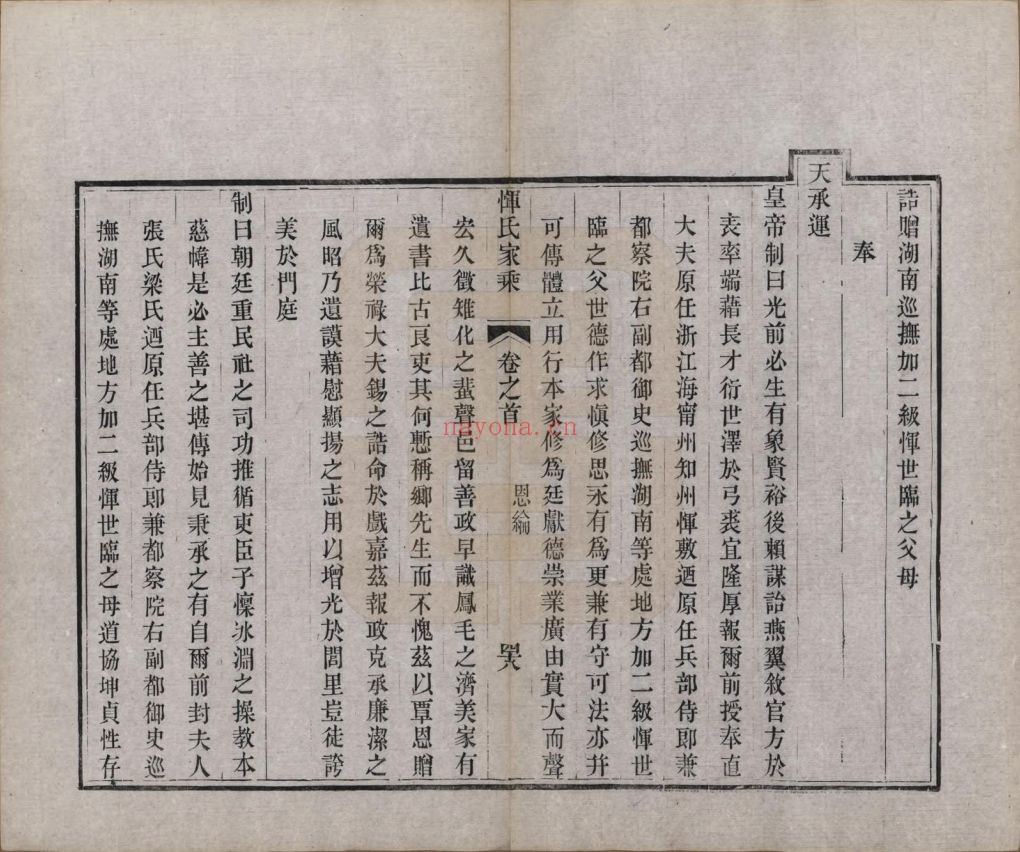 誥贈湖南巡撫加二級惲世臨之父母
奉
天承運
皇帝制曰光前必生有象賢裕後賴謀詒燕翼敘官方於
表率端藉長才衍世澤於弓裘宜隆厚報爾前授奉直
大夫原任浙江海甯州知州惲敷迺原任兵部侍郎兼
都察院右副都御史巡撫湖南等處地方加二級惲世
臨之父世德作求愼修思永有爲更兼有守可法亦幷
可傳體立用行本家修爲廷獻德崇業廣由實大而聲
惲氏家乘
卷之首
恩綸
宏久徵雉化之蜚聲邑留善政早識鳳毛之濟美家有
遺書比古良吏其何慙稱鄉先生而不愧茲以覃恩贈
爾爲榮祿大夫錫之誥命於戲嘉茲報政克承廉潔之
風昭乃遺謨藉慰顯揚之志用以增光於閭里豈徒誇
美於門庭
制曰朝廷重民社之司功推循吏臣子懍冰淵之操教本
慈幃是必主善之堪傳始見秉承之有自爾前封夫人
張氏梁氏迺原任兵部侍郎兼都察院右副都御史巡
撫湖南等處地方加二級惲世臨之母道協坤貞性存
nayona.cn